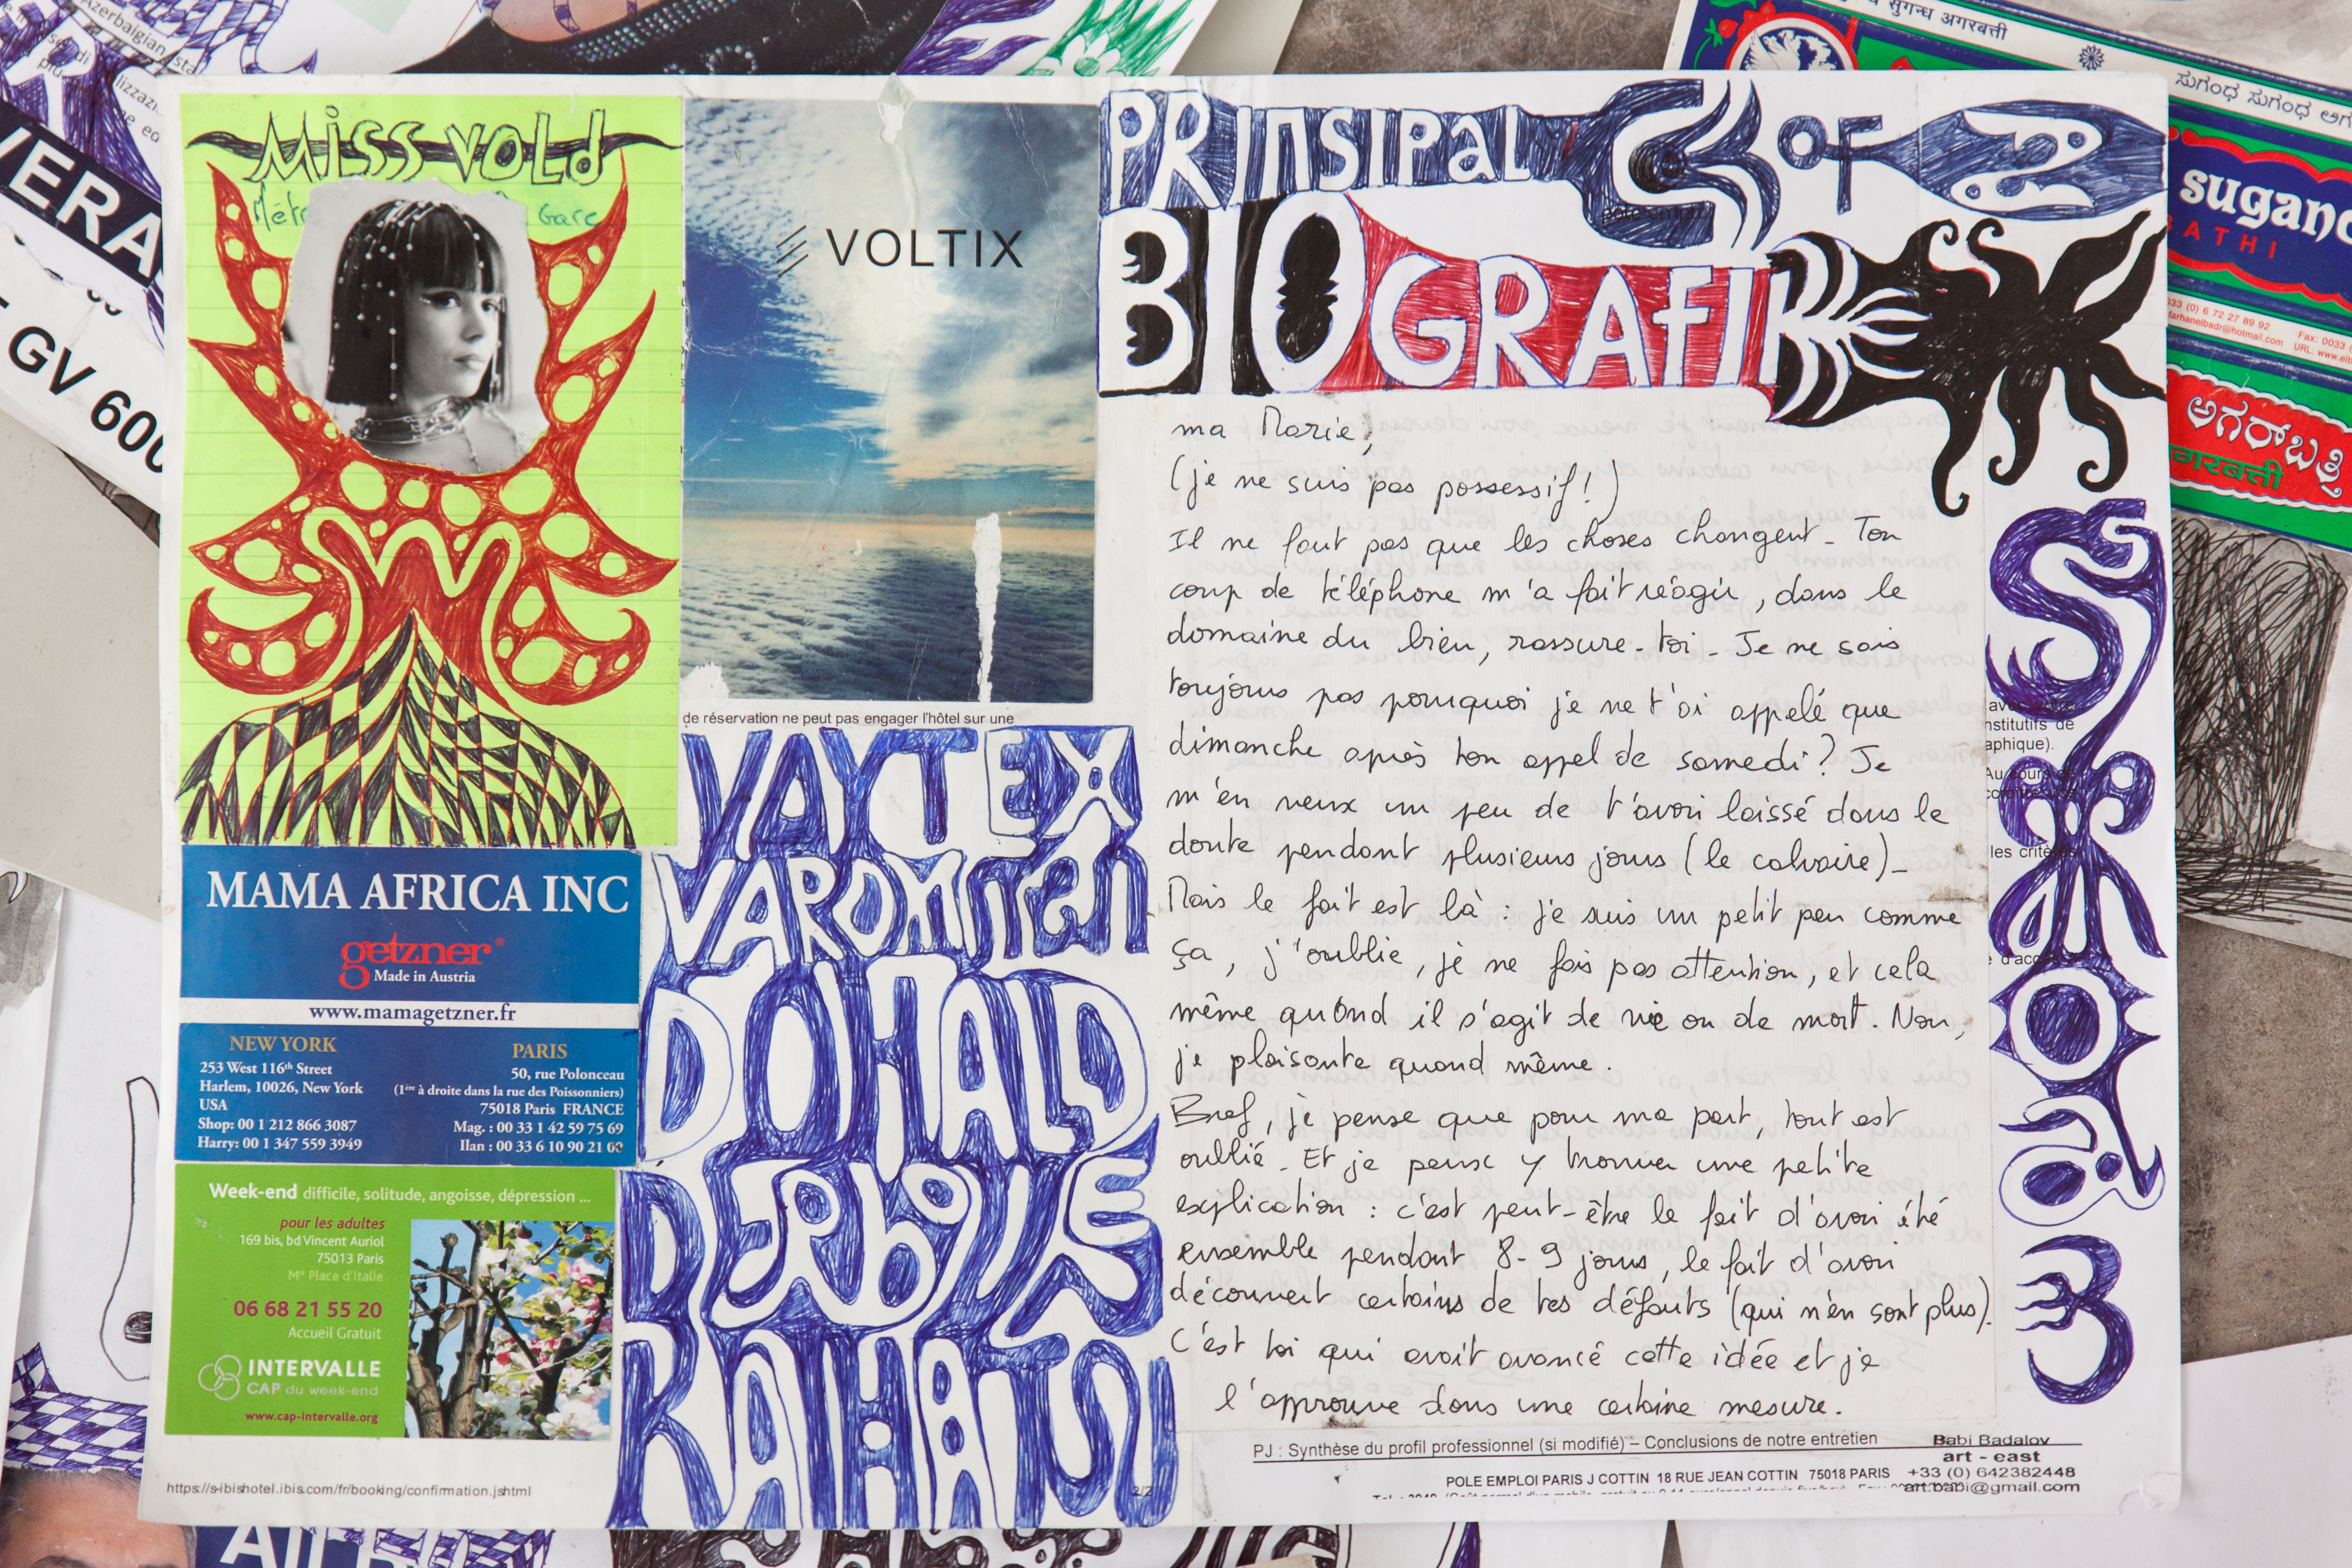 Azerbaigian
VERA
GV 600
सुगन्ध अगरबत्ती
ಸುಗಂಧ ಸುಗಂಧ
sugand
BATHI
033 (0) 6 72 27 89 92
farhanelbadr@hotmail.com
Fax: 0033
ಅಗರ್‌ಬತ್ತಿ
अगरबत्ती
MISS VOLD
Gare
VOLTIX
de réservation ne peut pas engager l'hôtel sur une
MAMA AFRICA INC
getzner®
Made in Austria
www.mamagetzner.fr
NEW YORK
253 West 116th Street
Harlem, 10026, New York
USA
Shop: 00 1 212 866 3087
Harry: 00 1 347 559 3949
PARIS
50, rue Polonceau
(1ère à droite dans la rue des Poissonniers)
75018 Paris FRANCE
Mag. : 00 33 1 42 59 75 69
Ilan : 00 33 6 10 90 21 60
Week-end difficile, solitude, angoisse, dépression ...
pour les adultes
169 bis, bd Vincent Auriol
75013 Paris
M° Place d'Italie
06 68 21 55 20
Accueil Gratuit
INTERVALLE
CAP du week-end
www.cap-intervalle.org
https://s-ibishotel.ibis.com/fr/booking/confirmation.jshtml
VAYTEX
DONALD
2/2
PRINSIPAL
OF
BIOGRAFI
ma Marie,
(je ne suis pas possessif!)
Il ne faut pas que les choses changent - Ton
coup de téléphone m'a fait réagir, dans le
domaine du bien, rassure-toi - Je ne sais
toujours pas pourquoi je ne t'ai appelé que
dimanche après ton appel de samedi? Je
m'en veux un peu de t'avoir laissé dans le
doute pendant plusieurs jours (le calvaire) -
Mais le fait est là : je suis un petit peu comme
ça, j'oublie, je ne fais pas attention, et cela
même quand il s'agit de vie ou de mort. Non,
je plaisante quand même.
Bref, je pense que pour ma part, tout est
oublié - Et je peux y trouver une petite
explication : c'est peut-être le fait d'avoir été
ensemble pendant 8-9 jours, le fait d'avoir
découvert certains de tes défauts (qui n'en sont plus).
C'est toi qui avait avancé cette idée et je
l'approuve dans une certaine mesure.
nstitutifs de
aphique).
les critè
PJ : Synthèse du profil professionnel (si modifié) – Conclusions de notre entretien
POLE EMPLOI PARIS J COTTIN 18 RUE JEAN COTTIN 75018 PARIS
Babi Badalov
art - east
+33 (0) 642382448
art.babi@gmail.com